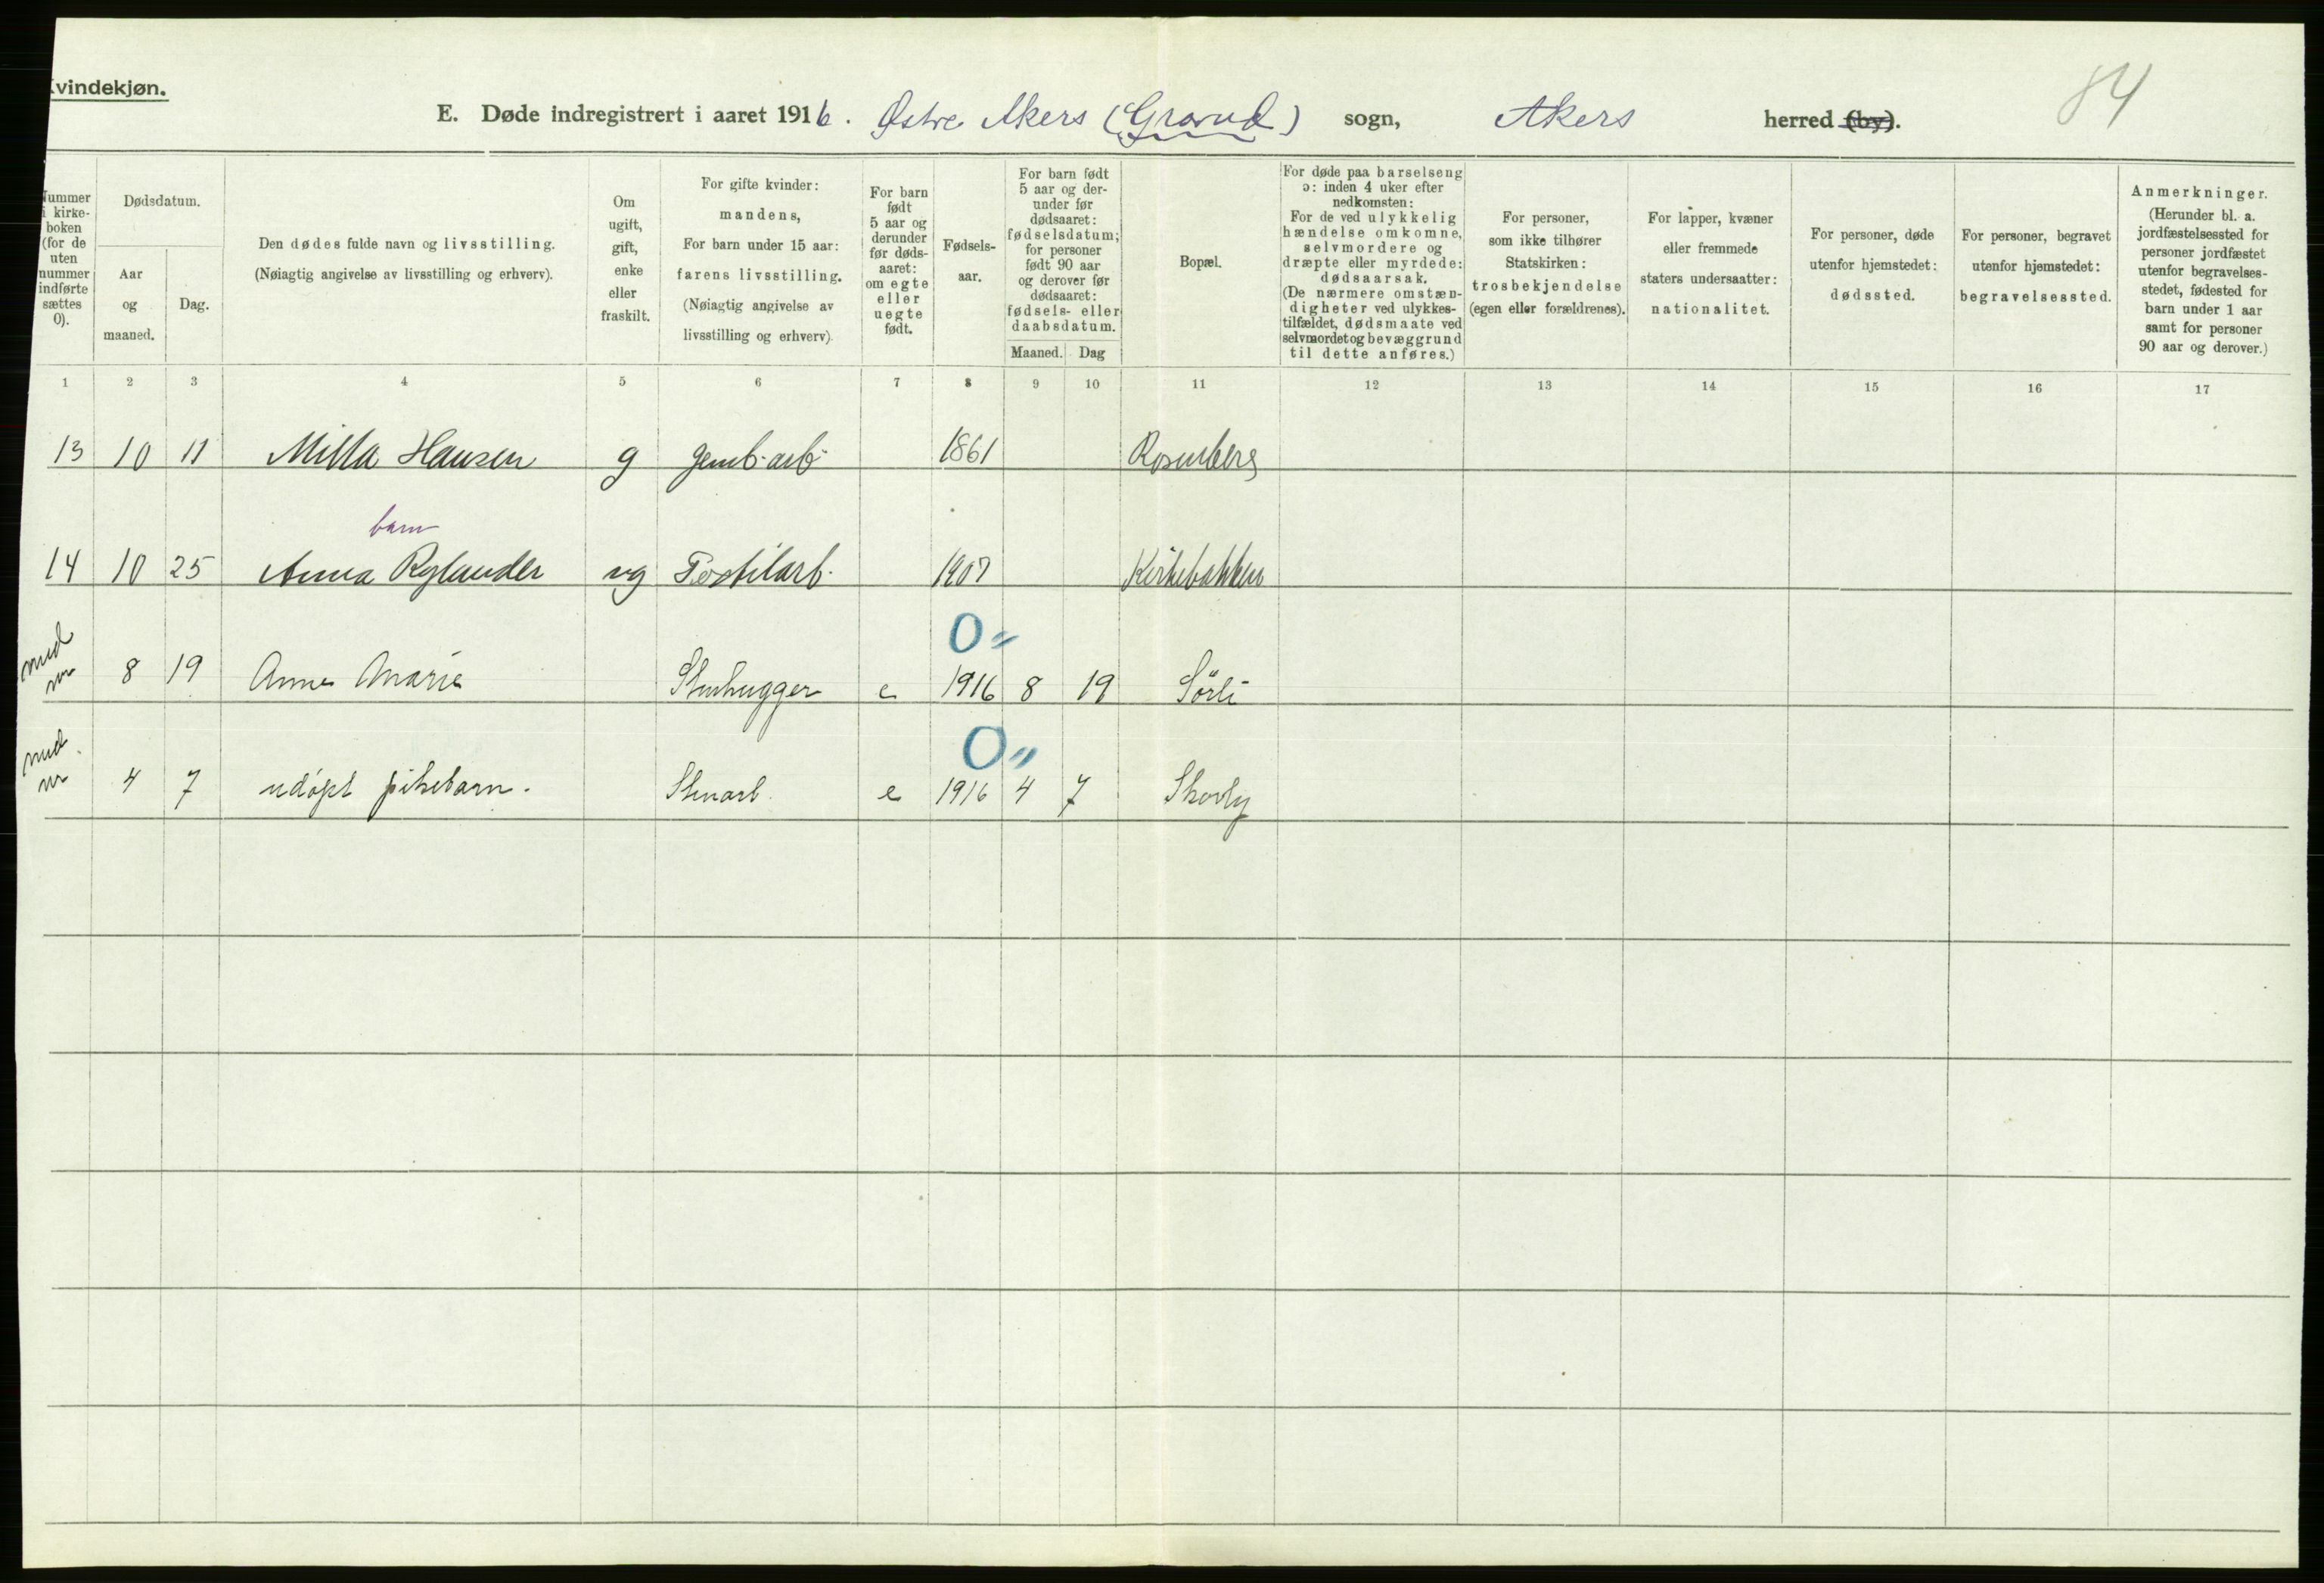 Kvindekjøn.
84
E. Døde indregistrert i aaret 1916. Østre Akers (Grorud) sogn, Akers herred (by).
Nummer i kirkeboken (for de uten nummer indførte sættes 0).
Dødsdatum.
Aar og maaned.
Dag.
Den dødes fulde navn og livsstilling.
(Nøiagtig angivelse av livsstilling og erhverv).
Om ugift, gift, enke eller fraskilt.
For gifte kvinder: mandens,
For barn under 15 aar: farens livsstilling.
(Nøiagtig angivelse av livsstilling og erhverv).
For barn født 5 aar og derunder før dødsaaret: om egte eller uegte født.
Fødselsaar.
For barn født 5 aar og derunder før dødsaaret: fødselsdatum; for personer født 90 aar og derover før dødsaaret: fødsels- eller daabsdatum.
Maaned. Dag
Bopæl.
For døde paa barselseng ɔ: inden 4 uker efter nedkomsten:
For de ved ulykkelig hændelse omkomne, selvmordere og dræpte eller myrdede: dødsaarsak.
(De nærmere omstændigheter ved ulykkestilfældet, dødsmaate ved selvmordet og bevæggrund til dette anføres.)
For personer, som ikke tilhører Statskirken: trosbekjendelse (egen eller forældrenes).
For lapper, kvæner eller fremmede staters undersaatter: nationalitet.
For personer, døde utenfor hjemstedet: dødssted.
For personer, begravet utenfor hjemstedet: begravelsessted.
Anmerkninger.
(Herunder bl. a. jordfæstelsessted for personer jordfæstet utenfor begravelsesstedet, fødested for barn under 1 aar samt for personer 90 aar og derover.)
1 2 3 4 5 6 7 8 9 10 11 12 13 14 15 16 17
13 10 11 Milla Hansen g jernb. arb. 1861 Rosenberg
barn
14 10 25 Anna Rylander ug Textilarb. 1907 Kirkebakken
0 "
8 19 Anne Marie Stenhugger e 1916 8 19 Sörli
0 "
4 7 udöpt pikebarn. Stenarb. e 1916 4 7 Skovly